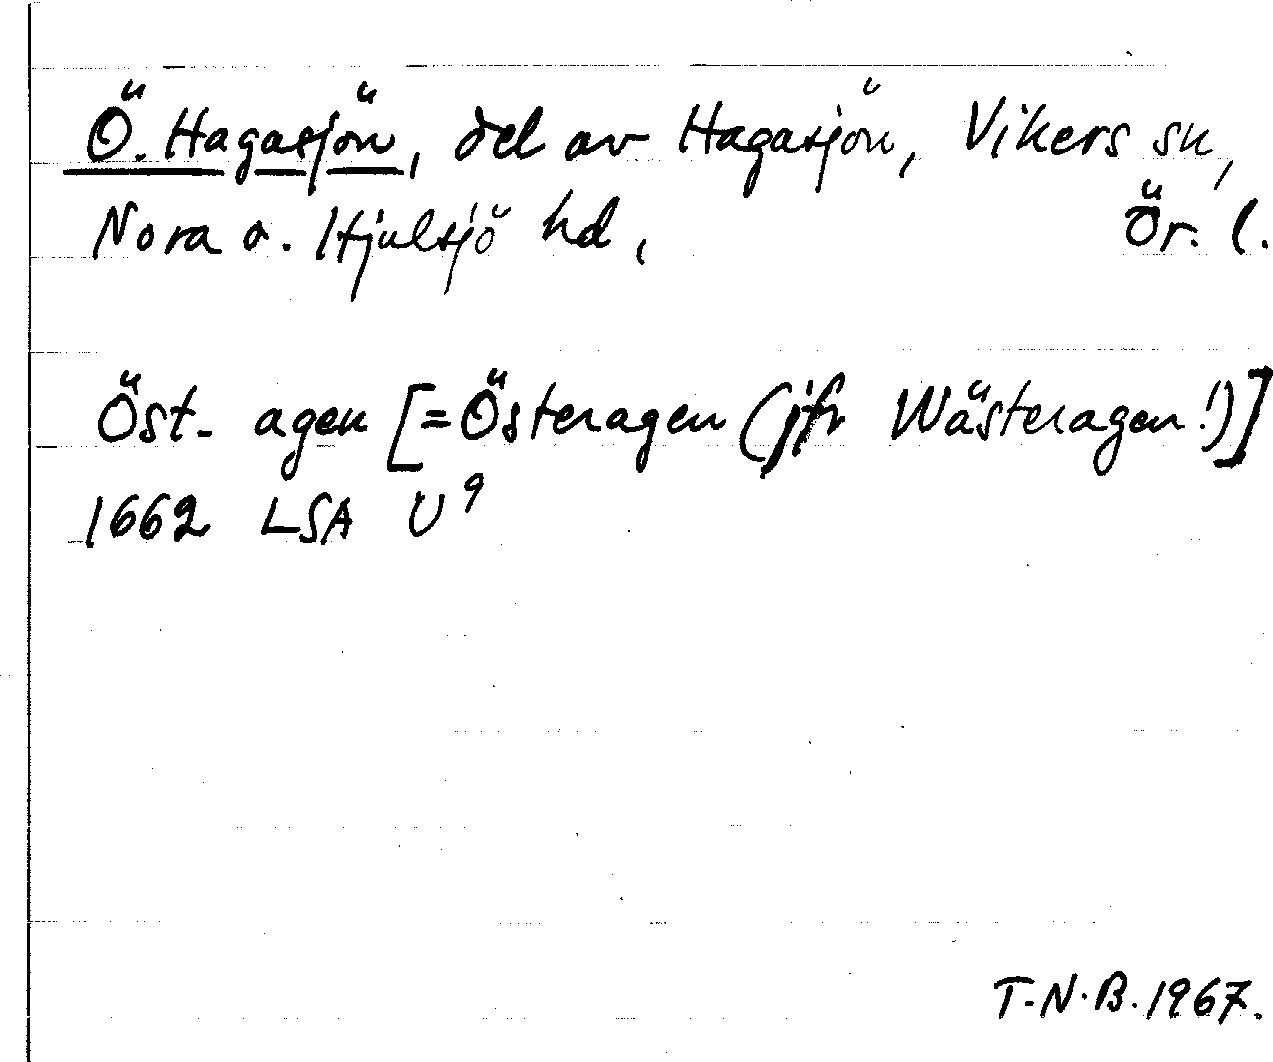 Ö. Hagasjön, del av Hagasjön, Vikers sn,
Nora o. Hjulsjö hd, Ör. l.
Öst- agen [=Österagen (jfr Wästeragen!)]
1662 LSA U⁹
T.N.B. 1967.